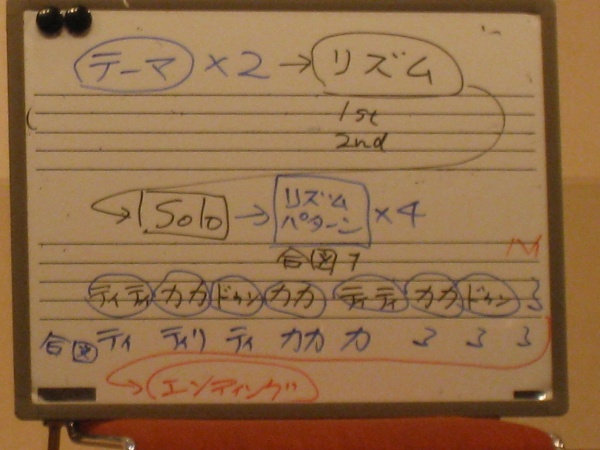 テーマ ×2 → リズム
1st
2nd
Solo → リズムパターン ×4
合図
ティティ カカ ドゥン カカ ティティ カカ ドゥン 3
合図 ティ ティリ ティ カカ カ 3 3 3
エンディング